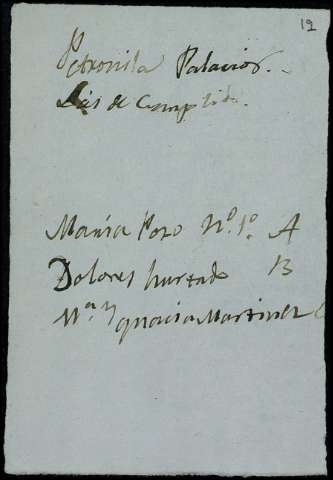 12
Petronila Palacios.
Dias de Cumplido.
Maria Pozo Nº. 1º. A
Dolores hurtado B
Mª. Ygnacia Martinez C